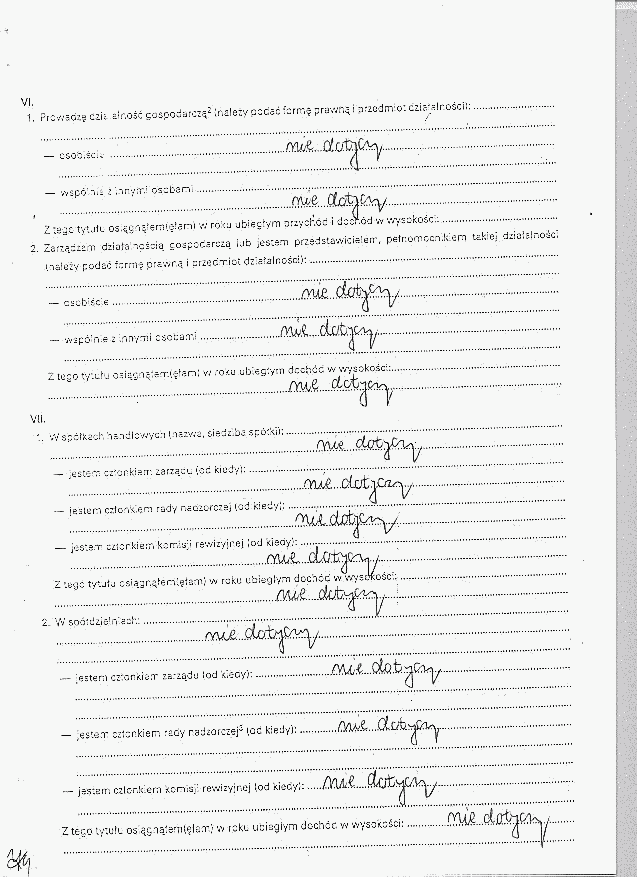 VI.
1. Prowadzę działalność gospodarczą² (należy podać formę prawną i przedmiot działalności):
— osobiście nie dotyczy
— wspólnie z innymi osobami
nie dotyczy
Z tego tytułu osiągnąłem(ęłam) w roku ubiegłym przychód i dochód w wysokości:
2. Zarządzam działalnością gospodarczą lub jestem przedstawicielem, pełnomocnikiem takiej działalności
(należy podać formę prawną i przedmiot działalności):
— osobiście nie dotyczy
— wspólnie z innymi osobami nie dotyczy
Z tego tytułu osiągnąłem(ęłam) w roku ubiegłym dochód w wysokości:
nie dotyczy
VII.
1. W spółkach handlowych (nazwa, siedziba spółki):
nie dotyczy
— jestem członkiem zarządu (od kiedy):
nie dotyczy
— jestem członkiem rady nadzorczej (od kiedy):
nie dotyczy
— jestem członkiem komisji rewizyjnej (od kiedy):
nie dotyczy
Z tego tytułu osiągnąłem(ęłam) w roku ubiegłym dochód w wysokości:
nie dotyczy
2. W spółdzielniach:
nie dotyczy
— jestem członkiem zarządu (od kiedy): nie dotyczy
— jestem członkiem rady nadzorczej³ (od kiedy): nie dotyczy
— jestem członkiem komisji rewizyjnej (od kiedy): nie dotyczy
Z tego tytułu osiągnąłem(ęłam) w roku ubiegłym dochód w wysokości: nie dotyczy